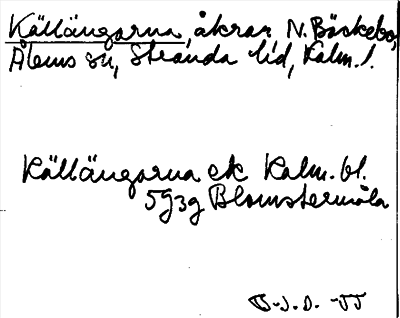 Källängarna, åkrar N. Bäckebo,
Ålems sn, Stranda hd, Kalm. l.
Källängarna ek Kalm. bl.
5g3g Blomstermåla